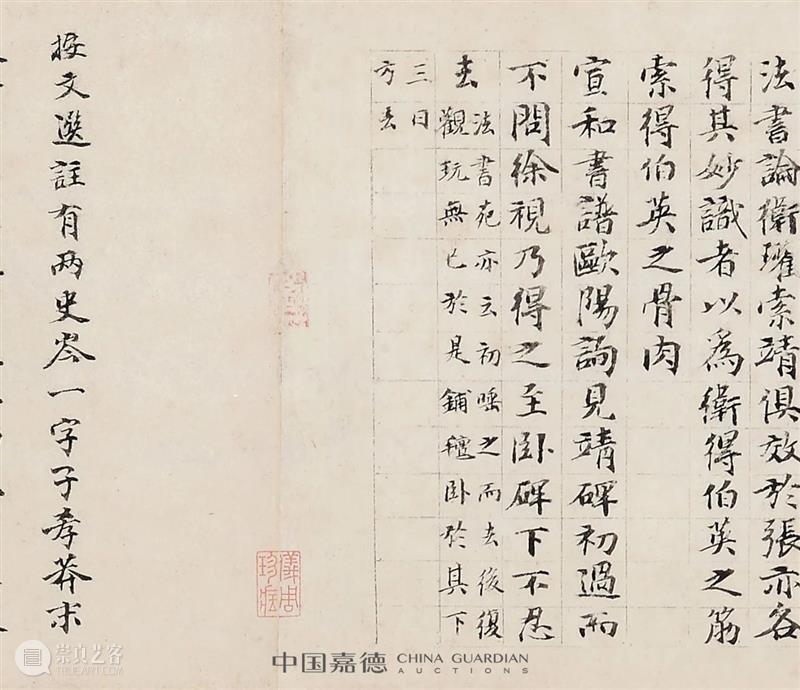 法書論衛瓘索靖俱效於張亦各
得其妙識者以為衛得伯英之筋
索得伯英之骨肉
宣和書譜歐陽詢見靖碑初過而
不問徐視乃得之至卧碑下不忍
去
法書苑亦云初唾之而去後復
觀玩無已於是鋪氊卧於其下
三日
方去
按文選註有兩史岑一字子孝莽末
儀周
珍藏
中国嘉德 CHINA GUARDIAN
AUCTIONS
崇真艺客